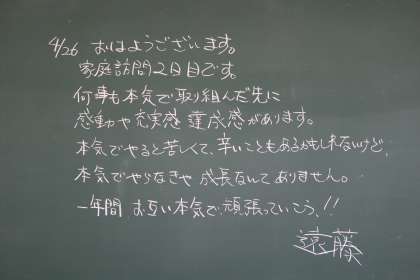 4/26 おはようございます。
家庭訪問2日目です。
何事も本気で取り組んだ先に
感動や充実感 達成感があります。
本気でやると苦しくて、辛いこともあるかもしれないけど、
本気でやらなきゃ 成長なんて ありません。
一年間 お互い本気で、頑張っていこう!!
遠藤